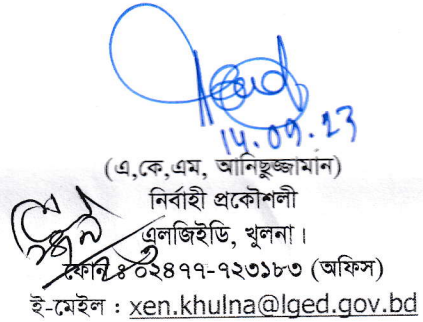 14.09.23
(এ,কে,এম, আনিছুজ্জামান)
নির্বাহী প্রকৌশলী
এলজিইডি, খুলনা।
ফোন ঃ ০২৪৭৭-৭২৩১৮৩ (অফিস)
ই-মেইল : xen.khulna@lged.gov.bd